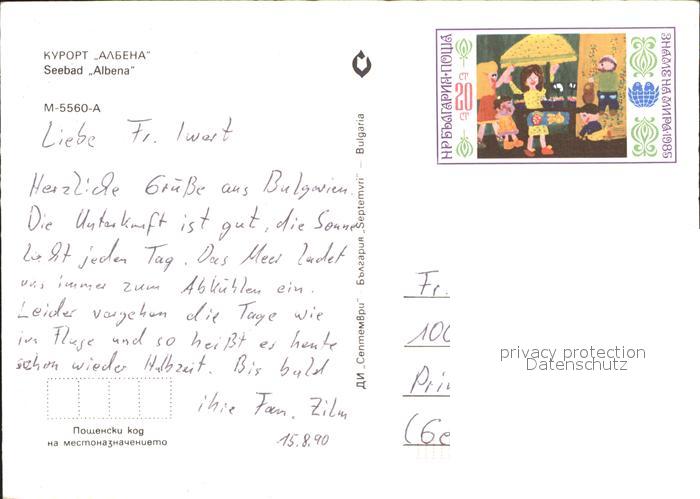 КУРОРТ „АЛБЕНА"
Seebad „Albena"
М-5560-А
Liebe Fr. Iwert
Herzliche Grüße aus Bulgarien.
Die Unterkunft ist gut, die Sonne
lacht jeden Tag. Das Meer ladet
uns immer zum Abkühlen ein.
Leider vergehen die Tage wie
im Fluge und so heißt es heute
schon wieder Halbzeit. Bis bald
ihre Fam. Zilm
15.8.90
Пощенски код
на местоназначението
ДИ „Септември" България „Septemvri" – Bulgaria
НР БЪЛГАРИЯ·ПОЩА
20 ст
ЗНАМЕ НА МИРА·1985
Fr.
100
Prin
(Ge
privacy protection
Datenschutz